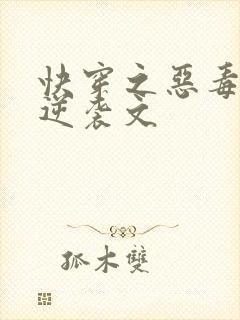 快穿之惡毒
逆袭文
孤木雙